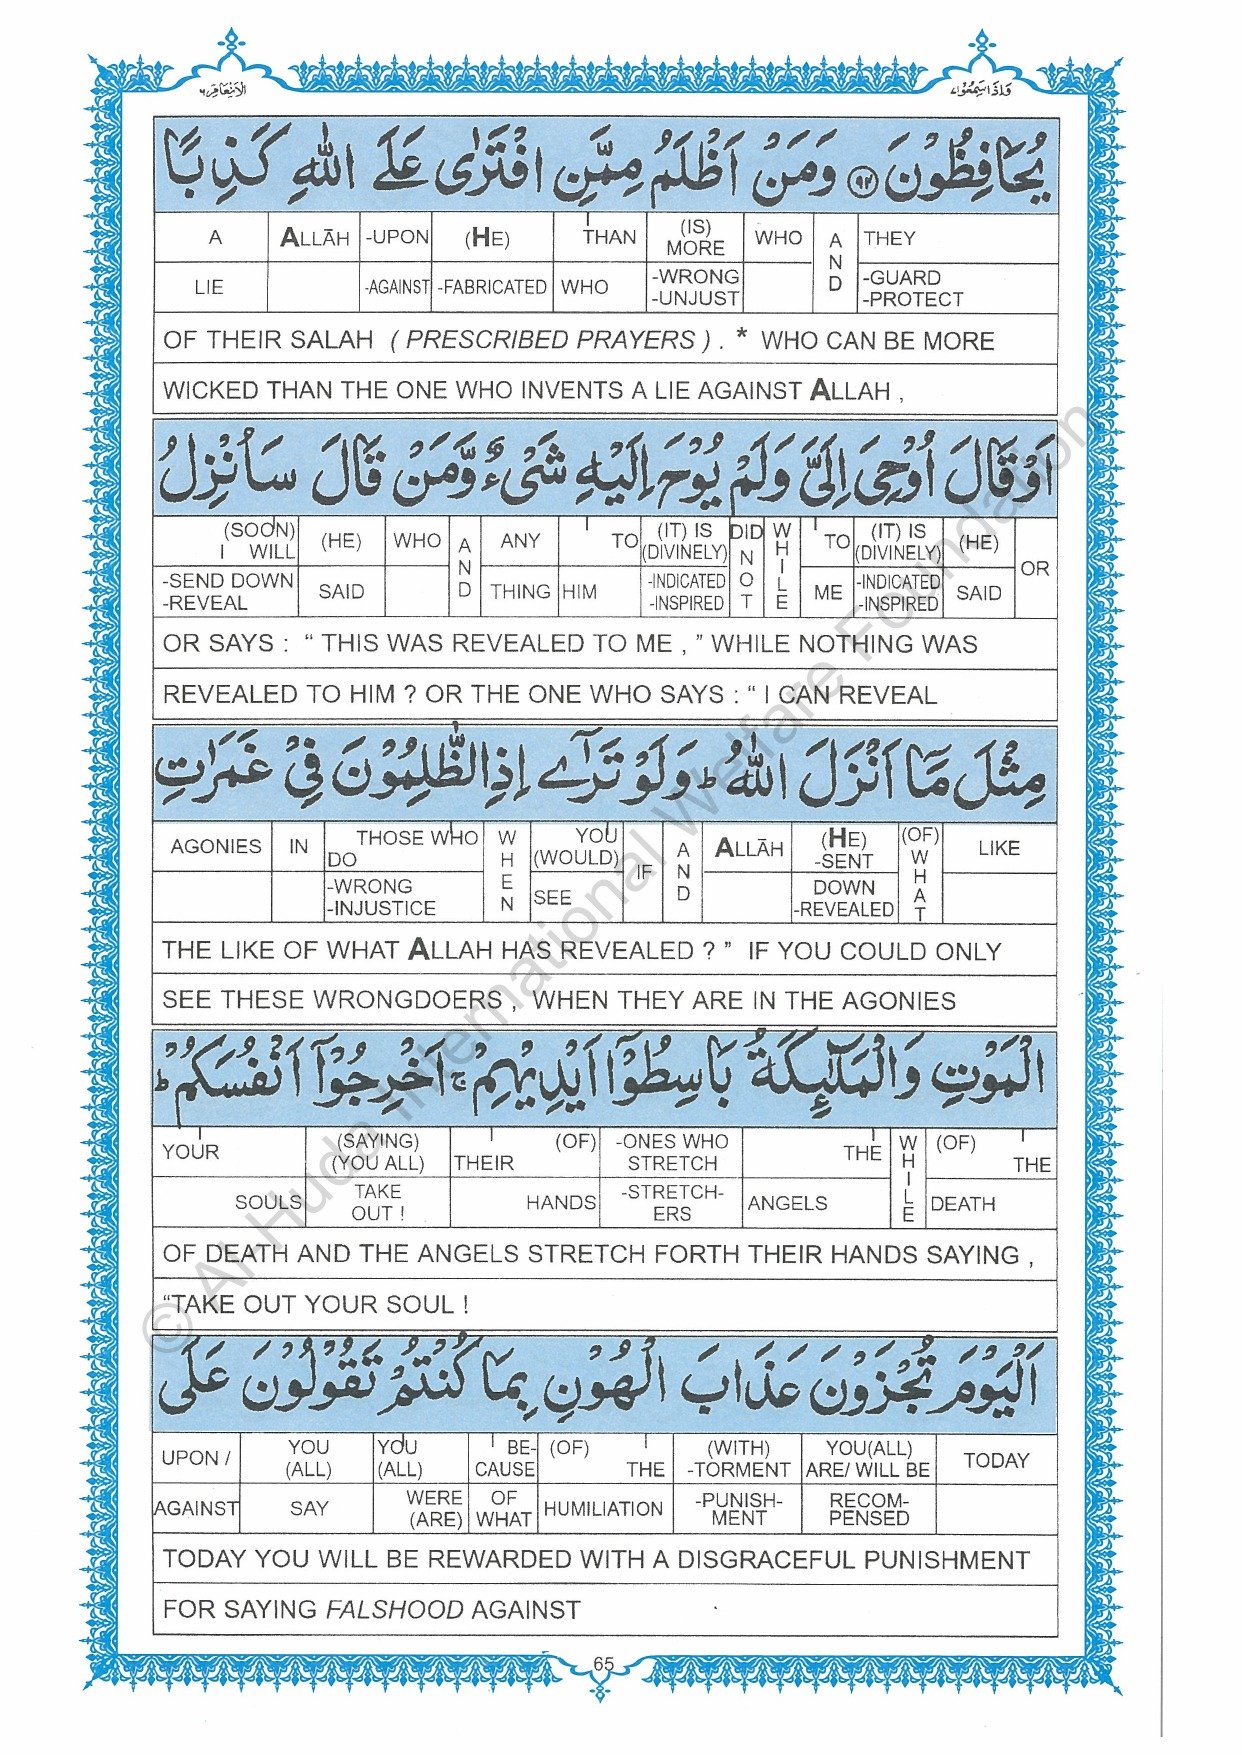 وَاِذَا سَمِعُوْا ٧
الْاَنْعَام ٦
يُحَافِظُوْنَ ﴿٩٢﴾ وَمَنْ اَظْلَمُ مِمَّنِ افْتَرٰى عَلَى اللّٰهِ كَذِبًا
A ALLĀH -UPON (HE) THAN (IS) MORE WHO AND THEY
LIE -AGAINST -FABRICATED WHO -WRONG -UNJUST -GUARD -PROTECT
OF THEIR SALAH ( PRESCRIBED PRAYERS ) . * WHO CAN BE MORE
WICKED THAN THE ONE WHO INVENTS A LIE AGAINST ALLAH ,
اَوْ قَالَ اُوْحِىَ اِلَىَّ وَلَمْ يُوْحَ اِلَيْهِ شَىْءٌ وَّمَنْ قَالَ سَاُنْزِلُ
(SOON) I WILL (HE) WHO AND ANY TO (IT) IS (DIVINELY) DID NOT WHILE TO (IT) IS (DIVINELY) (HE) OR
-SEND DOWN -REVEAL SAID THING HIM -INDICATED -INSPIRED ME -INDICATED -INSPIRED SAID
OR SAYS : “ THIS WAS REVEALED TO ME , ” WHILE NOTHING WAS
REVEALED TO HIM ? OR THE ONE WHO SAYS : “ I CAN REVEAL
مِثْلَ مَا اَنْزَلَ اللّٰهُ ؕ وَلَوْ تَرٰٓى اِذِ الظّٰلِمُوْنَ فِىْ غَمَرٰتِ
AGONIES IN THOSE WHO DO WHEN YOU (WOULD) IF AND ALLĀH (HE) -SENT (OF) WHAT LIKE
-WRONG -INJUSTICE SEE DOWN -REVEALED
THE LIKE OF WHAT ALLAH HAS REVEALED ? ” IF YOU COULD ONLY
SEE THESE WRONGDOERS , WHEN THEY ARE IN THE AGONIES
الْمَوْتِ وَالْمَلٰٓئِكَةُ بَاسِطُوْٓا اَيْدِيْهِمْ ۚ اَخْرِجُوْٓا اَنْفُسَكُمْ ؕ
YOUR (SAYING) (YOU ALL) THEIR (OF) -ONES WHO STRETCH THE WHILE (OF) THE
SOULS TAKE OUT ! HANDS -STRETCH- ERS ANGELS DEATH
OF DEATH AND THE ANGELS STRETCH FORTH THEIR HANDS SAYING ,
“TAKE OUT YOUR SOUL !
اَلْيَوْمَ تُجْزَوْنَ عَذَابَ الْهُوْنِ بِمَا كُنْتُمْ تَقُوْلُوْنَ عَلَى
UPON / YOU (ALL) YOU (ALL) BE- CAUSE (OF) THE (WITH) -TORMENT YOU(ALL) ARE/ WILL BE TODAY
AGAINST SAY WERE (ARE) OF WHAT HUMILIATION -PUNISH- MENT RECOM- PENSED
TODAY YOU WILL BE REWARDED WITH A DISGRACEFUL PUNISHMENT
FOR SAYING FALSHOOD AGAINST
65
© Al-Huda International Welfare Foundation